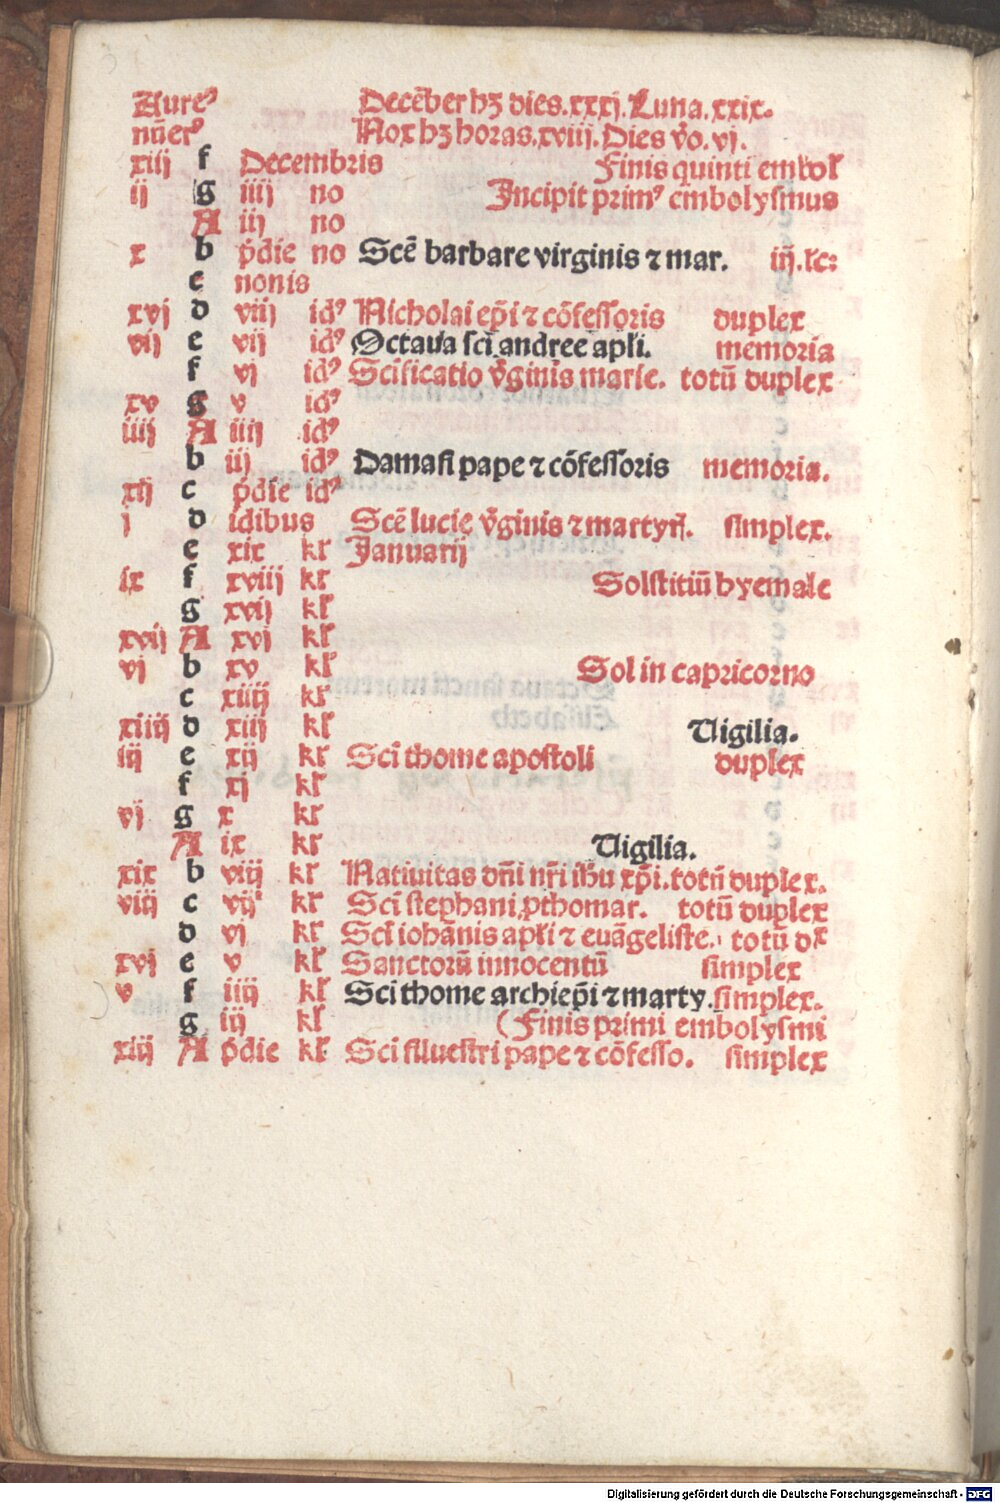 Aureꝰ Decēber hʒ dies.xxxj.Luna.xxix.
nūerꝰ Nox hʒ horas.xviij.Dies v̊o.vj.
xiij f Decembris Finis quinti embol
ij g iiij no Incipit primꝰ embolysmus
A iij no
x b p̄die no Scē barbare virginis ⁊ mar. iij.lc:
c nonis
xvj d viij idꝰ Nicholai ep̄i ⁊ cōfessoris duplex
vij e vij idꝰ Octaua sci andree apli. memoria
f vj idꝰ Scificatio v̊ginis marie. totū duplex
xv g v idꝰ
iiij A iiij idꝰ
b iij idꝰ Damasi pape ⁊ cōfessoris memoria.
xij c p̄die idꝰ
j d idibus Scē lucie v̊ginis ⁊ martyr. simplex.
e xix kl Januarij
ix f xviij kl Solstitiū hyemale
g xvij kl
xvij A xvj kl
vj b xv kl Sol in capricorno
c xiiij kl
xiiij d xiij kl Vigilia.
iij e xij kl Sci thome apostoli duplex
f xj kl
vj g x kl
A ix kl Vigilia.
xix b viij kl Natiuitas dn̄i nr̄i ihu xp̄i.totū duplex.
viij c vij kl Sci stephani ꝓthomar. totū duplex
d vj kl Sci iohānis apli ⁊ euāgeliste. totū dx
xvj e v kl Sanctorū innocentū simplex
v f iiij kl Sci thome archiep̄i ⁊ marty.simplex.
g iij kl (Finis primi embolysmi
xiij A p̄die kl Sci siluestri pape ⁊ cōfesso. simplex
Digitalisierung gefördert durch die Deutsche Forschungsgemeinschaft - DFG